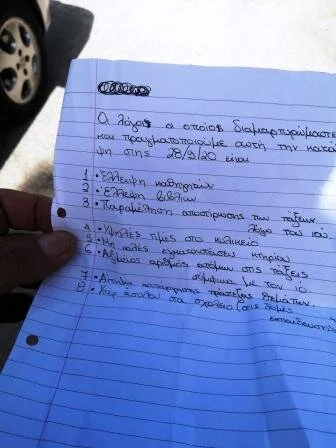 Ο λόγος ο οποίος διαμαρτυρόμαστε
και πραγματοποιούμε αυτή την κατά
ψη στης 28/9/20 είναι
1 • Έλλειψη καθηγητών
2 • Έλλειψη βιβλίων
3 • Παραμέληση αποστήρωσης των τάξεων
λόγο του ιού
4 • Υψηλές τιμές στο κυλικείο
5 • Μη καλές εγκαταστάσεις κτηρίου
6 • Αεξιμος αριθμός ατόμων στις τάξεις
σύμφωνα με τον ιό.
7 • Αίτημα κατάργησης τράπεζας θεμάτων.
8 • στα σχολεία (στις δομές
εκπαίδευσης)